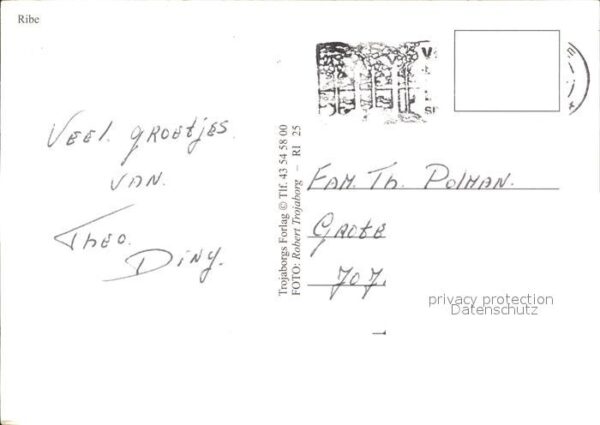 Ribe
VEEL GROETJES
VAN.
THEO.
DINY.
Trojaborgs Forlag © Tlf. 43 54 58 00
FOTO: Robert Trojaborg – RI 25
FAM. TH. POLMAN.
GROTE
707.
privacy protection
Datenschutz